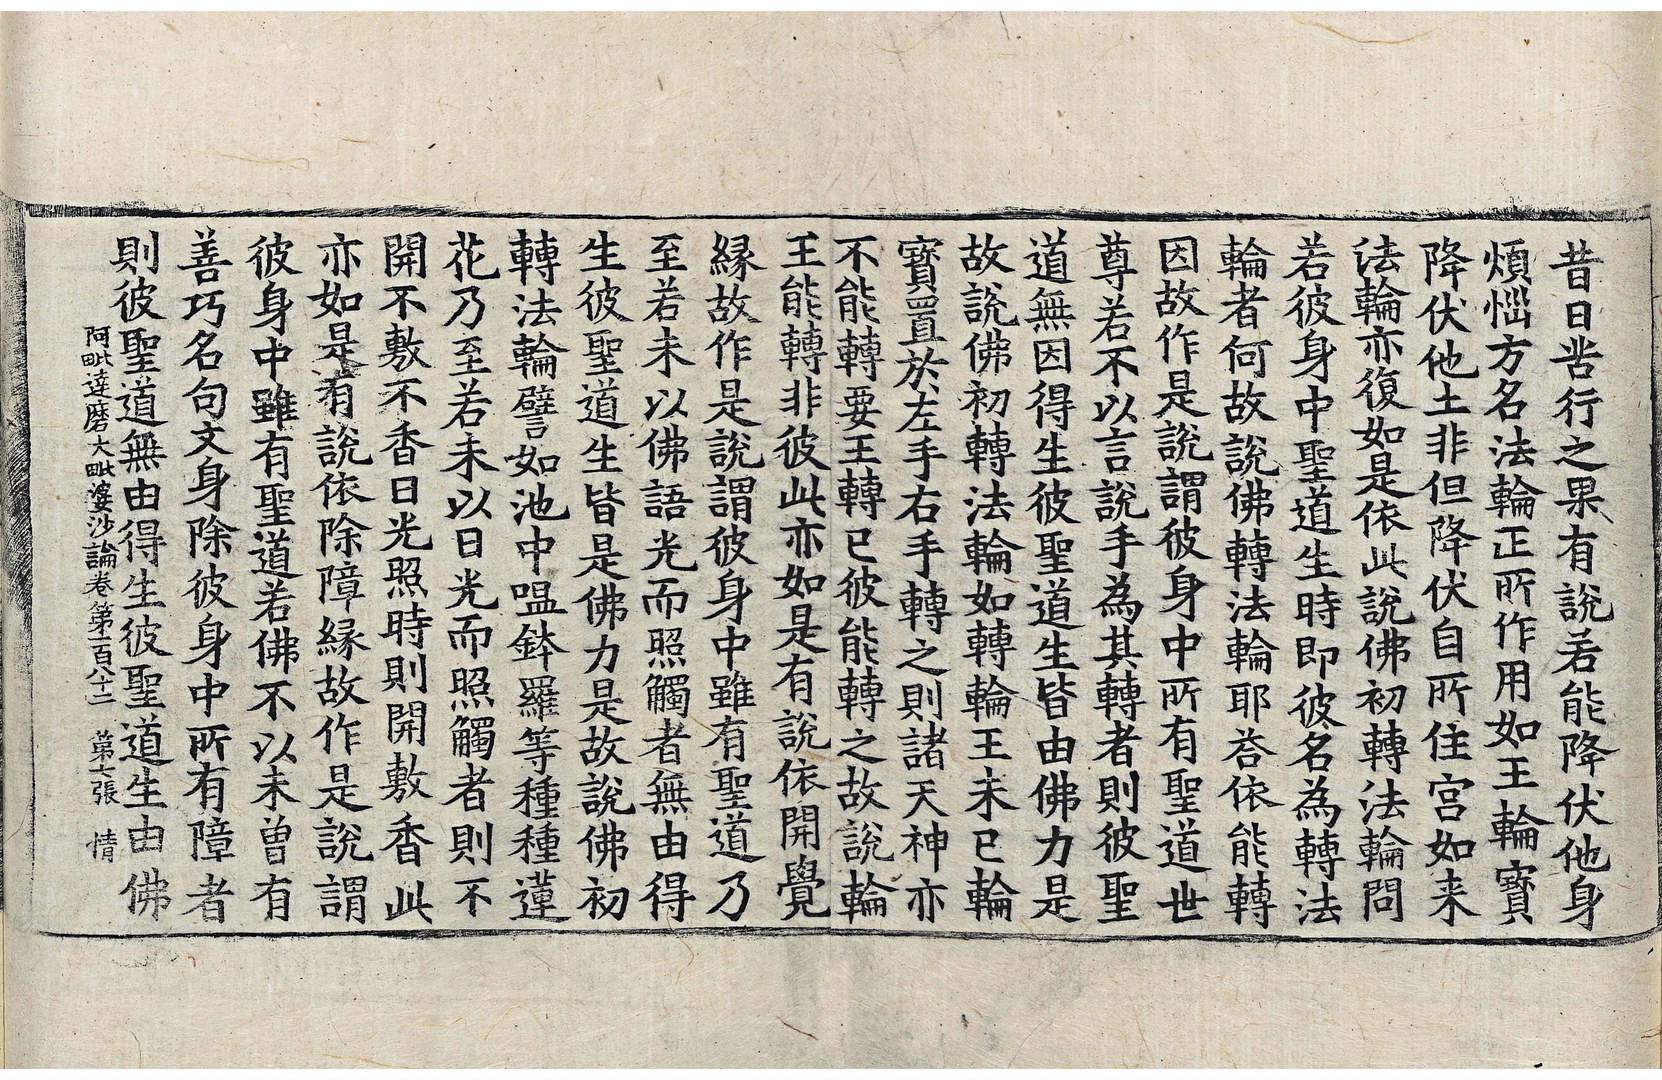 昔日苦行之果有說若能降伏他身
煩惱方名法輪正所作用如王輪寶
降伏他土非但降伏自所住宮如来
法輪亦復如是依此說佛初轉法輪問
若彼身中聖道生時即彼名為轉法
輪者何故說佛轉法輪耶荅依能轉
因故作是說謂彼身中所有聖道世
尊若不以言說手為其轉者則彼聖
道無因得生彼聖道生皆由佛力是
故說佛初轉法輪如轉輪王未已輪
寶置於左手右手轉之則諸天神亦
不能轉要王轉已彼能轉之故說輪
王能轉非彼此亦如是有說依開覺
緣故作是說謂彼身中雖有聖道乃
至若未以佛語光而照觸者無由得
生彼聖道生皆是佛力是故說佛初
轉法輪譬如池中嗢鉢羅等種種蓮
花乃至若未以日光而照觸者則不
開不敷不香日光照時則開敷香此
亦如是有說依除障緣故作是說謂
彼身中雖有聖道若佛不以未曾有
善巧名句文身除彼身中所有障者
則彼聖道無由得生彼聖道生由佛
阿毗達磨大毗婆沙論卷第一百八十二 第七張 情